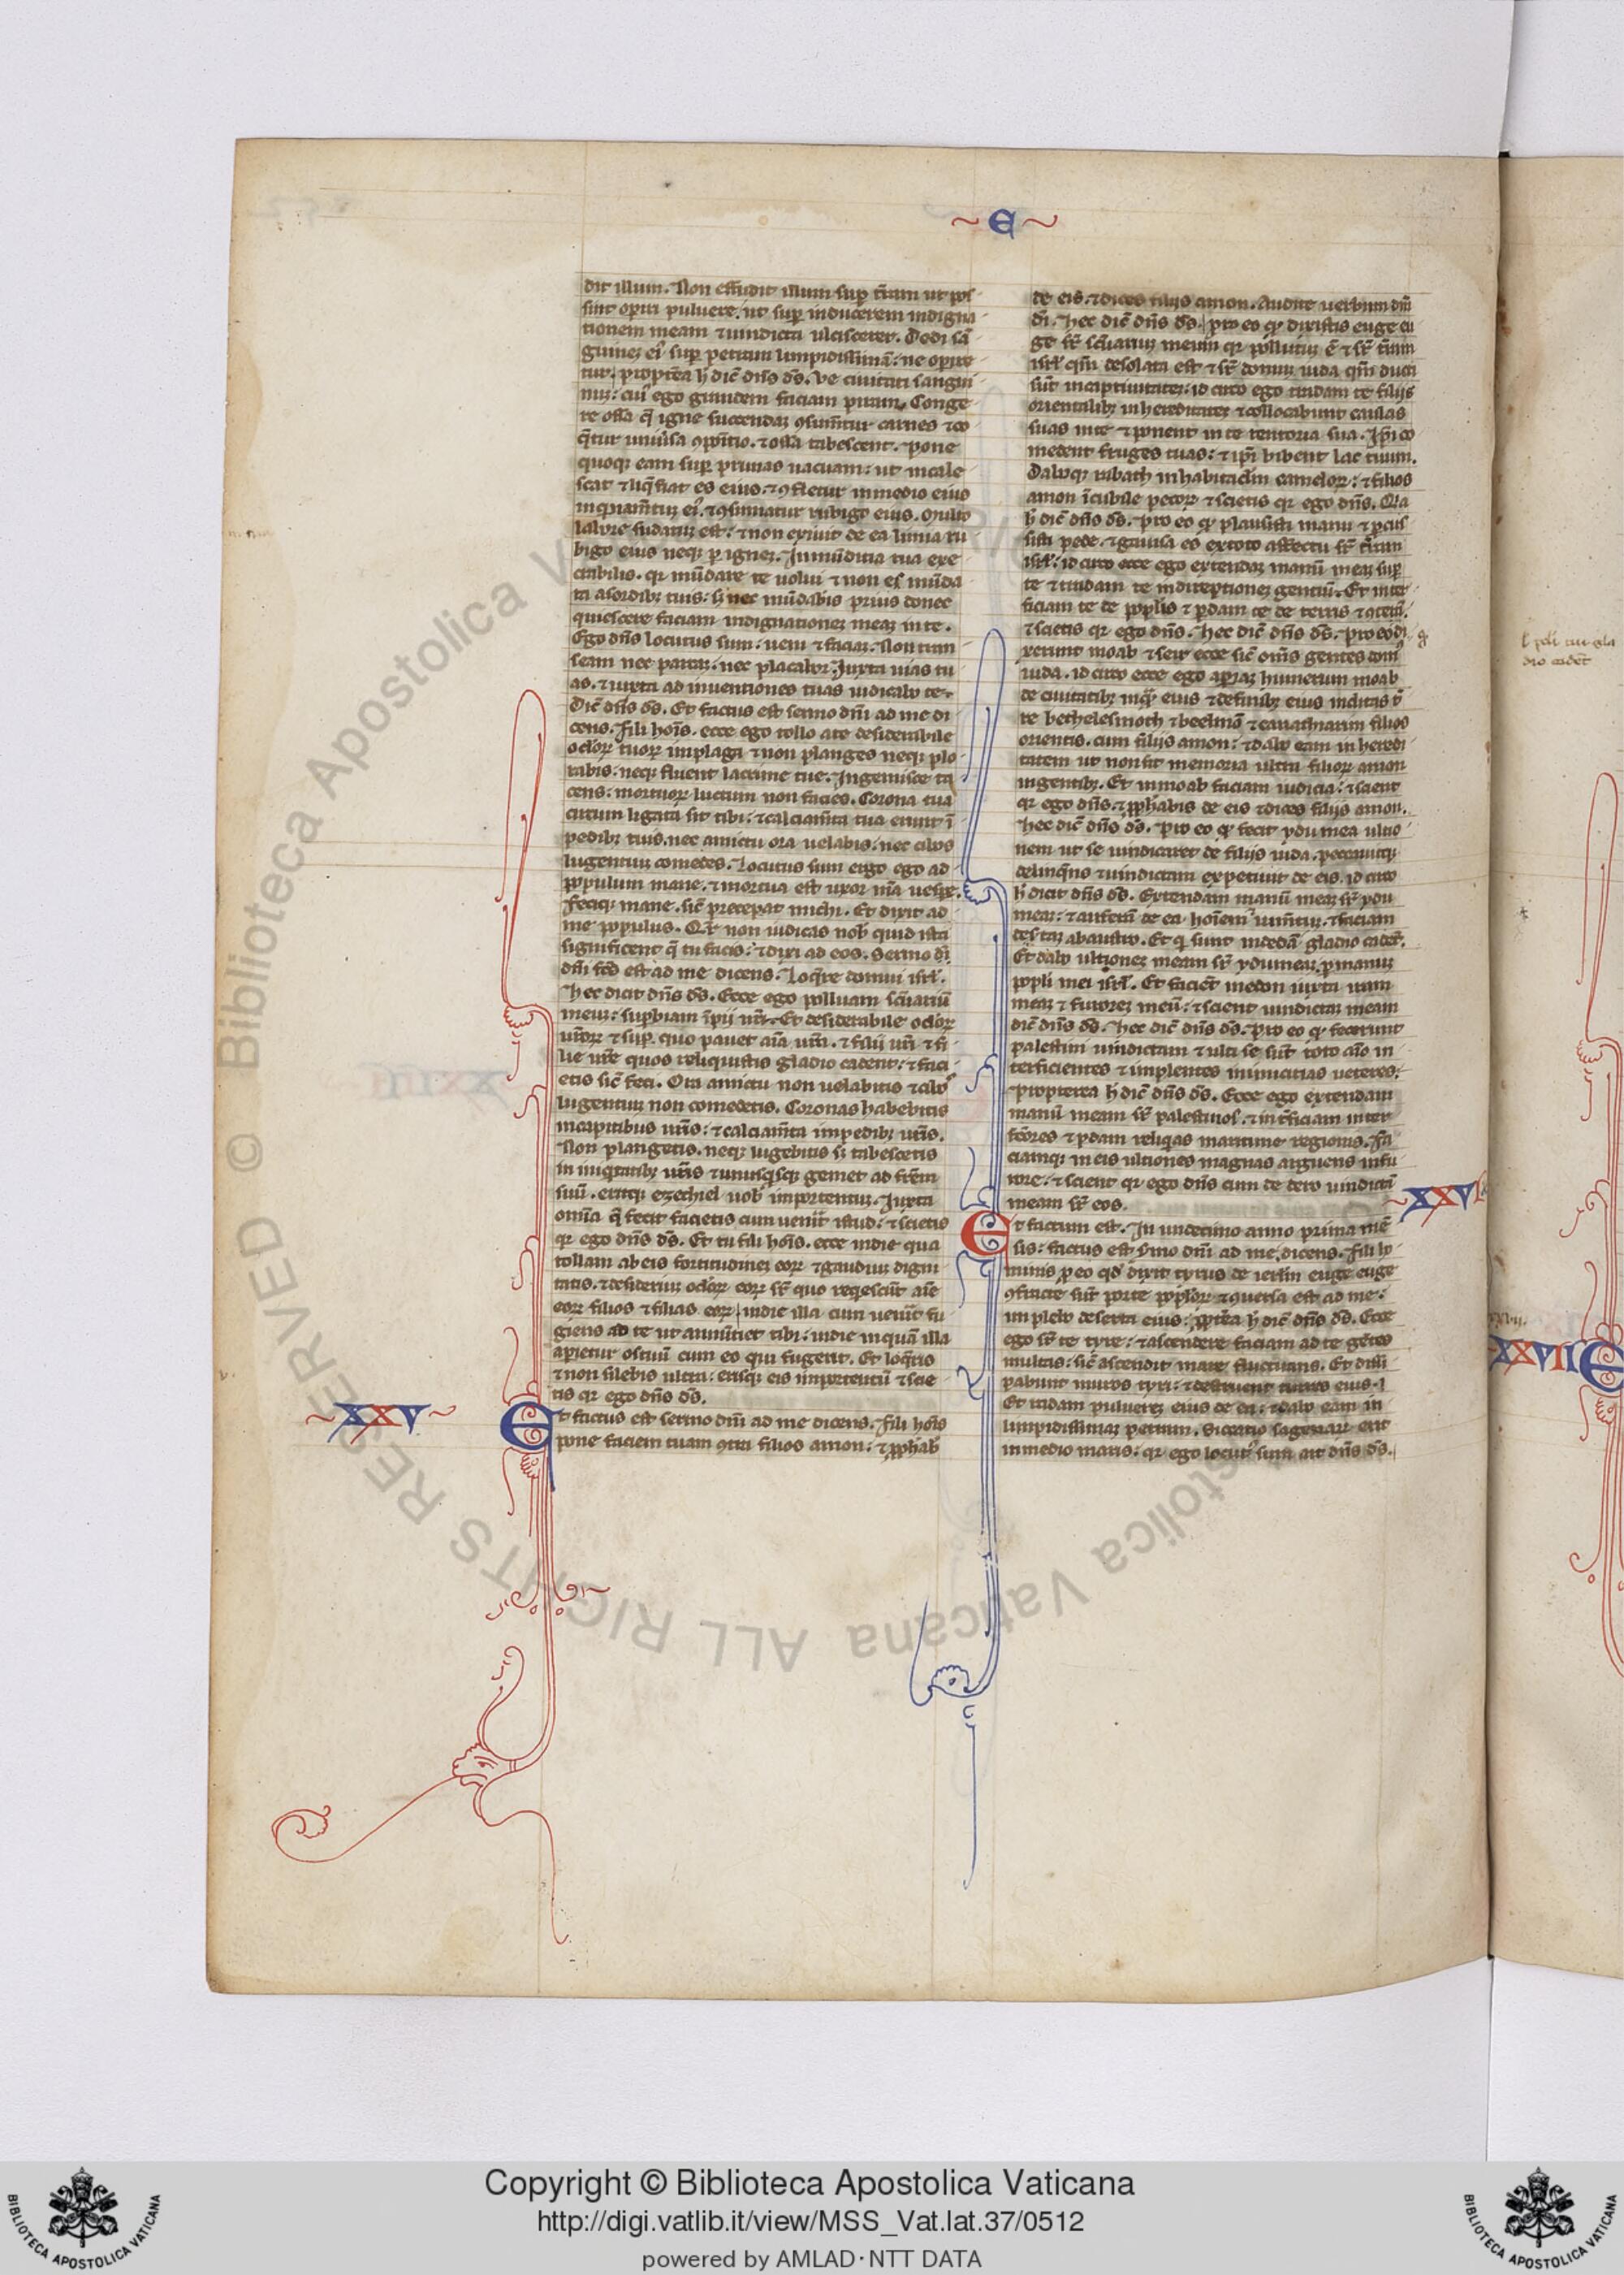 ~ E ~
dit illum. Non effudit illum suꝑ t̃ram ut pos
sint operiri puluere. ut suꝑ inducerem indigna
tionem meam ⁊ uindicta ulciscerer. Dedi sã
guineꝫ ei᷒ suꝑ petram limpidissimã: ne operire
tur. propt̃ea h̃ dic̃ dñs ds̃. Ve ciuitati sangui
nuꝫ: cui᷒ ego grandem faciam piram. Conge
re ossa q̃ igne succendaꝫ ꝯsumt̃ur carnes ⁊ co
q̃tur uniu̾sa ꝯpositio. ⁊ ossa tabescent. Pone
quoqꝫ eam suꝑ prunas uacuam: ut incale
scat ⁊ liq̃fiat es eius: ⁊ ꝯfletur in medio eius
inquinam̃tuꝫ ei᷒. ⁊ ꝯsumatur rubigo eius. Multo
labore sudatuꝫ est: ⁊ non exiuit de ea nimia ru
bigo eius neqꝫ ꝑ igneꝫ. Inmũditia tua exe
crabilis. qꝛ mũdare te uolui ⁊ non es mũda
ta a sordibꝫ tuis: sꝫ nec mũdabis prius donec
quiescere faciam indignationeꝫ meaꝫ in te.
Ego dñs locutus sum: ueni ⁊ faciaꝫ. Non tran
seam nec parcaꝫ: nec placabor. Iuxta uias tu
as. ⁊ iuxta adinuentiones tuas iudicabo te.
Dic̃ dñs ds̃. Et factus est sermo dñi ad me di
cens. Fili hoĩs. ecce ego tollo a te desiderabile
oculoꝝ tuoꝝ in plaga ⁊ non planges neqꝫ plo
rabis: neqꝫ fluent lacrime tue. Ingemisce ta
cens: mortuoꝝ luctum non facies. Corona tua
circum ligata sit tibi: ⁊ calciam̃ta tua erunt ĩ
pedibꝫ tuis. nec amictu ora uelabis: nec cibos
lugentiuꝫ comedes. Locutus sum ergo ego ad
populum mane. ⁊ mortua est uxor m̃a uesꝑe.
Feciqꝫ mane. sic̃ preceperat michi. Et dixit ad
me populus. Qr̃e non iudicas nob̃ quid ista
significent q̃ tu facis: ⁊ dixi ad eos. Sermo di
dñi fc̃s est ad me dicens. Loq̃re domui isrl̃.
Hec dicit dñs ds̃. Ecce ego polluam sc̃uariũ
meuꝫ: suꝑbiam ĩperii ur̃i. Et desiderabile oculoꝝ
ur̃oꝝ ⁊ suꝑ quo pauet aĩa ur̃a. ⁊ filii ur̃i ⁊ fi
lie ur̃e quos reliquistis gladio cadent: ⁊ faci
etis sic̃ feci. Ora amictu non uelabitis ⁊ cibos
lugentiuꝫ non comedetis. Coronas habebitis
in capitibus ur̃is: ⁊ calciam̃ta in pedibꝫ ur̃is.
Non plangetis. neqꝫ lugebitis sꝫ tabescetis
in iniqtatibꝫ ur̃is ⁊ unusqsqꝫ gemet ad fr̃em
suũ. eritqꝫ ezechiel uob̃ in portentuꝫ. Iuxta
om̃ia q̃ fecit facietis cum uenit̃ istud: ⁊ scietis
qꝛ ego dñs ds̃. Et tu fili hoĩs. ecce in die qua
tollam ab eis fortitudineꝫ eoꝝ ⁊ gaudiuꝫ digni
tatis. ⁊ desideriuꝫ oculoꝝ eoꝝ suꝑ quo reqescũt aĩe
eoꝝ filios ⁊ filias eoꝝ in die illa cum uenit̃ fu
giens ad te ut annũtiet tibi: in die inquã illa
aperietur os tuũ cum eo qui fugerit. Et loq̃ris
⁊ non silebis ultra: erisqꝫ eis in portentũ ⁊ scie
tis qꝛ ego dñs ds̃.
~XXV~
Et factus est sermo dñi ad me dicens. Fili hoĩs
pone faciem tuam ꝯtra filios amon: ⁊ ꝓphab̃
de eis. ⁊ dices filiis amon. Audite uerbum dñi
di. Hec dic̃ dñs ds̃. pro eo qꝫ dixistis euge eu
ge sr̃ sc̃uariuꝫ meum qꝛ pollutuꝫ ẽ ⁊ sr̃ t̃ram
isrl̃ qm̃ desolata est ⁊ sr̃ domuꝫ iuda qm̃ ducti
sũt in captiuitateꝫ: id circo ego tradam te filiis
orientalibꝫ in hereditateꝫ ⁊ collocabunt caulas
suas in te ⁊ ponent in te tentoria sua. Ipsi co
medent fruges tuas: ⁊ ipsi bibent lac tuum.
Daboqꝫ rabath in habitaculum cameloꝝ: ⁊ filios
amon ĩ cubile pecoꝝ ⁊ scietis qꝛ ego dñs. Quia
h̃ dic̃ dñs ds̃. Pro eo qꝫ plausisti manu ⁊ ꝑcus
sisti pede. ⁊ gauisa es ex toto affectu sr̃ t̃ram
isrl̃: id circo ecce ego extendaꝫ manũ meaꝫ suꝑ
te ⁊ tradam te in direptioneꝫ gentiũ. Et inter
ficiam te de populis ⁊ ꝑdam te de terris ⁊ ꝯteram.
⁊ scietis qꝛ ego dñs. Hec dic̃ dñs ds̃. Pro eo q di
xerunt moab ⁊ seir ecce sic̃ om̃s gentes dom᷒
iuda. id circo ecce ego aperiaꝫ humerum moab
de ciuitatibꝫ inqꝫ eius ⁊ de finibꝫ eius inclitas t̃
re bethelesmoth ⁊ beelmõ ⁊ cariathiarim filios
orientis. cum filiis amon: ⁊ dabo eam in heredi
tatem ut non sit memoria ultra filioꝝ amon
in gentibꝫ. Et in moab faciam iudicia: ⁊ scient
qꝛ ego dñs. ⁊ ꝓphabis de eis ⁊ dices filiis amon.
Hec dic̃ dñs ds̃. Pro eo qꝫ fecit ydumea ultio
nem ut se uindicaret de filiis iuda. peccauitqꝫ
delinq̃ns ⁊ uindictam expetiuit de eis. id circo
h̃ dicit dñs ds̃. Extendam manũ meaꝫ sr̃ ydu
meaꝫ: ⁊ auferã de ea hoĩem ⁊ iumt̃uꝫ. ⁊ faciam
desertaꝫ ab austro. Et q sunt in dedã gladio cadent̃.
Et dabo ultioneꝫ meam sr̃ ydumeaꝫ. ꝑ manuꝫ
popli mei isrl̃. Et faciẽt in edon iuxta iram
meaꝫ ⁊ furoreꝫ meũ: ⁊ scient uindictaꝫ meam
dic̃ dñs ds̃. Hec dic̃ dñs ds̃. Pro eo qꝫ fecerunt
palestini uindictam ⁊ ulti se sũt toto aĩo in
terficientes ⁊ implentes inimicitias ueteres:
propterea h̃ dic̃ dñs ds̃. Ecce ego extendam
manũ meam sr̃ palestinos. ⁊ int̃ficiam inter
fc̃ores ⁊ ꝑdam reliqas maritime regionis. Fa
ciamqꝫ in eis ultiones magnas arguens in fu
rore: ⁊ scient qꝛ ego dñs cum de dero uindictã
meam sr̃ eos.
~XXVI
Et factum est. In undecimo anno prima mẽ
sis: factus est sermo dñi ad me. dicens. Fili ho
minis ꝑ eo qd̃ dixit tyrus de ierl̃m euge euge
ꝯfracte sũt porte poploꝝ ⁊ ꝯuersa est ad me:
implebor deserta eius: ꝓpt̃ea h̃ dic̃ dñs ds̃. Ecce
ego sr̃ te tyre: ⁊ ascendere faciam ad te gẽtes
multas: sic̃ ascendit mare fluctuans. Et dissi
pabunt muros tyri: ⁊ destruent turres eius.
Et radam puluereꝫ eius de ea: ⁊ dabo eam in
limpidissimaꝫ petram. Siccatio sagenaꝝ erit
in medio maris: qꝛ ego locut᷒ sum ait dñs ds̃.
XXVII
E
Copyright © Biblioteca Apostolica Vaticana
http://digi.vatlib.it/view/MSS_Vat.lat.37/0512
powered by AMLAD·NTT DATA
BIBLIOTECA APOSTOLICA VATICANA
BIBLIOTECA APOSTOLICA VATICANA
© Biblioteca Apostolica Vaticana ALL RIGHTS RESERVED